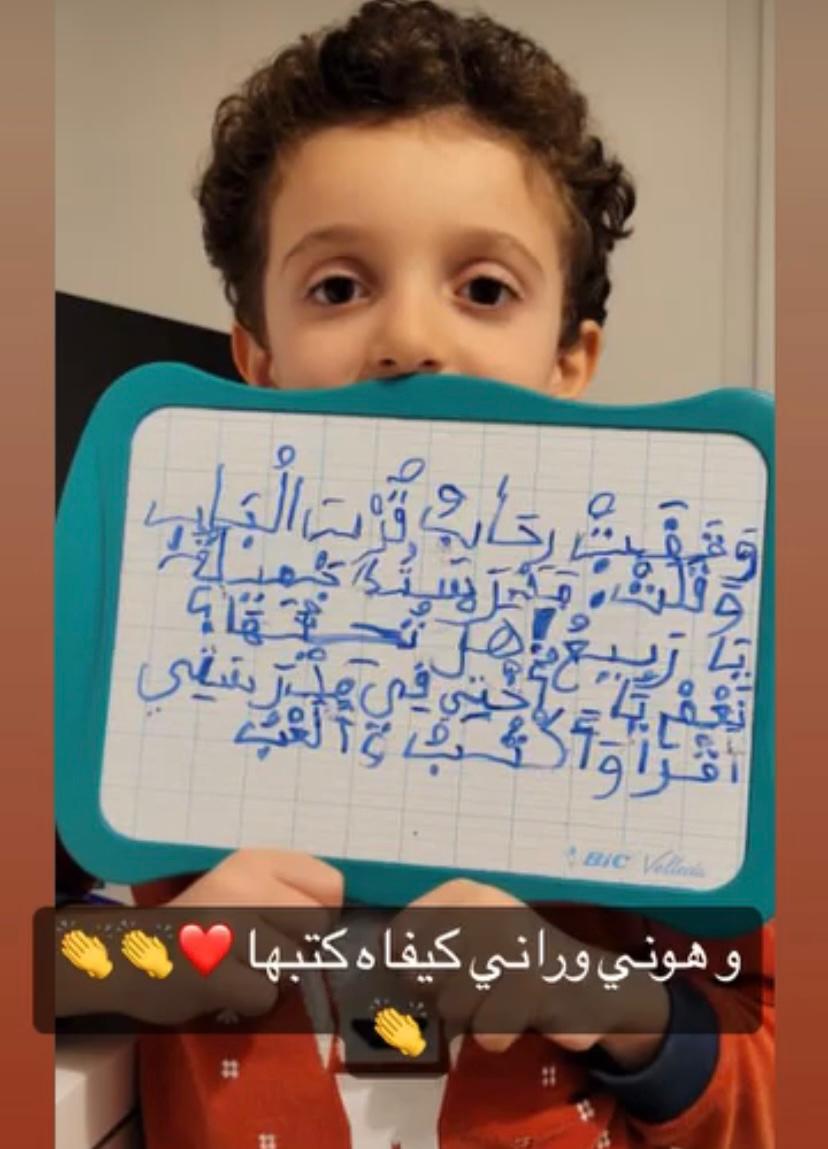 وَقَفَتْ رحَابُ قُرْبَ الْبَابِ
وَقَلَتْ: مَدْرَسَتُكَ جَمِيلَةٌ
يَا رَبِيعُ! هَلْ
نَعَمْ يَا أُخْتِي فِي مَدْرَسَتِي
أَقْرَأُ وَ أَكْتُبُ وَ أَلْعَبُ
BIC Velleda
و هوني وراني كيفاه كتبها ❤️👏👏
👏